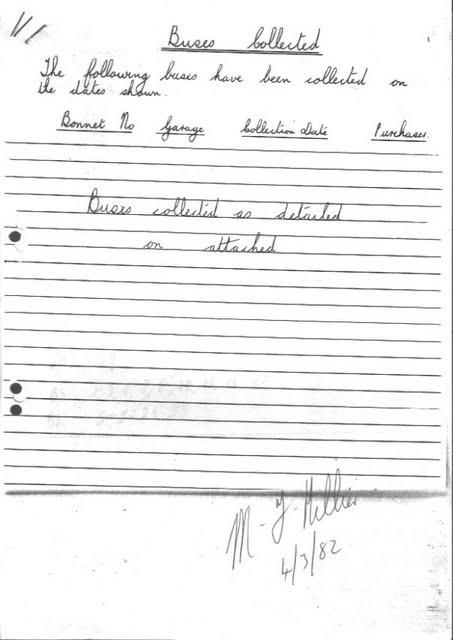 Buses Collected
The following buses have been collected on
the dates shown.
Bonnet No Garage Collection Date Purchases.
Buses collected as detailed
on attached
M-J-Hillier
4/3/82